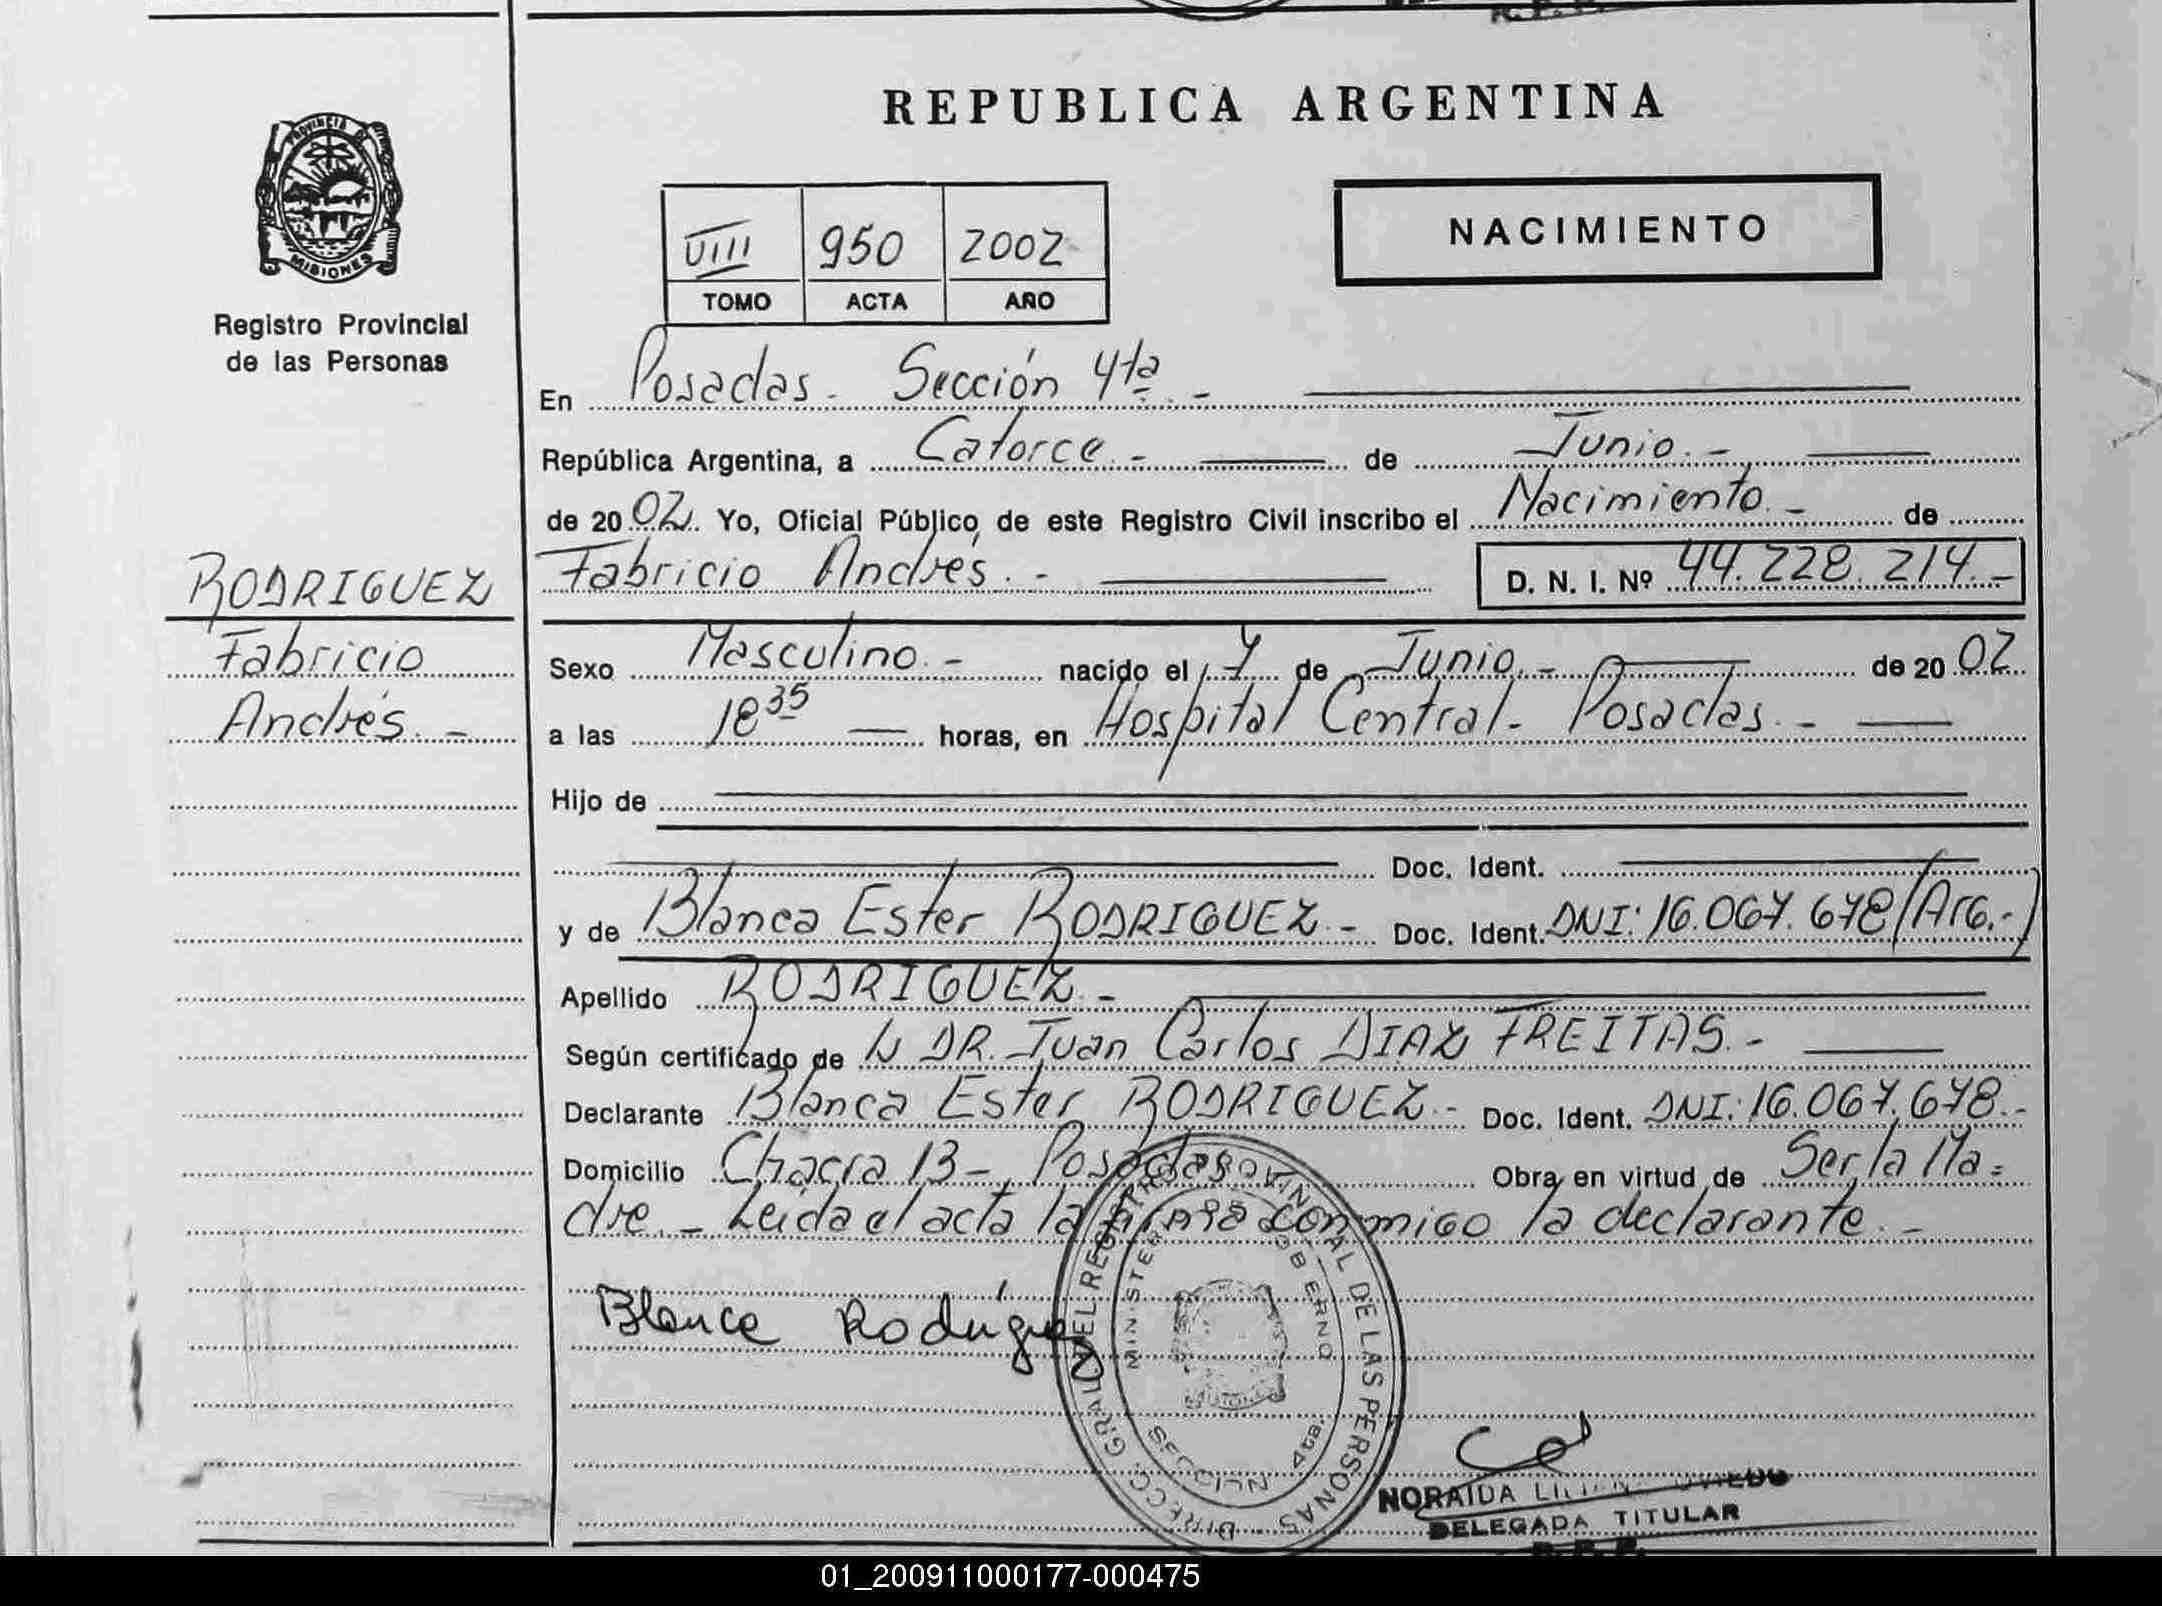 REPUBLICA ARGENTINA
PROVINCIA DE
MISIONES
Registro Provincial
de las Personas
NACIMIENTO
VIII 950 2002
TOMO ACTA AÑO
En Posadas - Sección 4ta. -
República Argentina, a Catorce. - de Junio. -
de 2002. Yo, Oficial Público, de este Registro Civil inscribo el Nacimiento. - de
Fabricio Andrés. - D. N. I. Nº 44.228.214. -
RODRIGUEZ
Fabricio
Andrés. -
Sexo Masculino. - nacido el 7 de Junio. - de 2002
a las 18 35 horas, en Hospital Central - Posadas. -
Hijo de
Doc. Ident.
y de Blanca Ester RODRIGUEZ - Doc. Ident. DNI: 16.067.678 (Arg. -)
Apellido RODRIGUEZ. -
Según certificado de DR. Juan Carlos DIAZ FREITAS. -
Declarante Blanca Ester RODRIGUEZ. - Doc. Ident. DNI: 16.067.678. -
Domicilio Chacra 13 - Posadas Obra en virtud de Ser la Ma=
dre. - Leida el acta la firma conmigo la declarante. -
Blanca Rodríguez
DIRECC. GRAL. DEL REGISTRO PROVINCIAL DE LAS PERSONAS
MINISTERIO DE GOBIERNO
SECCION 4ta.
NORAIDA OVIEDO
DELEGADA TITULAR
R.P.P.
01_200911000177-000475